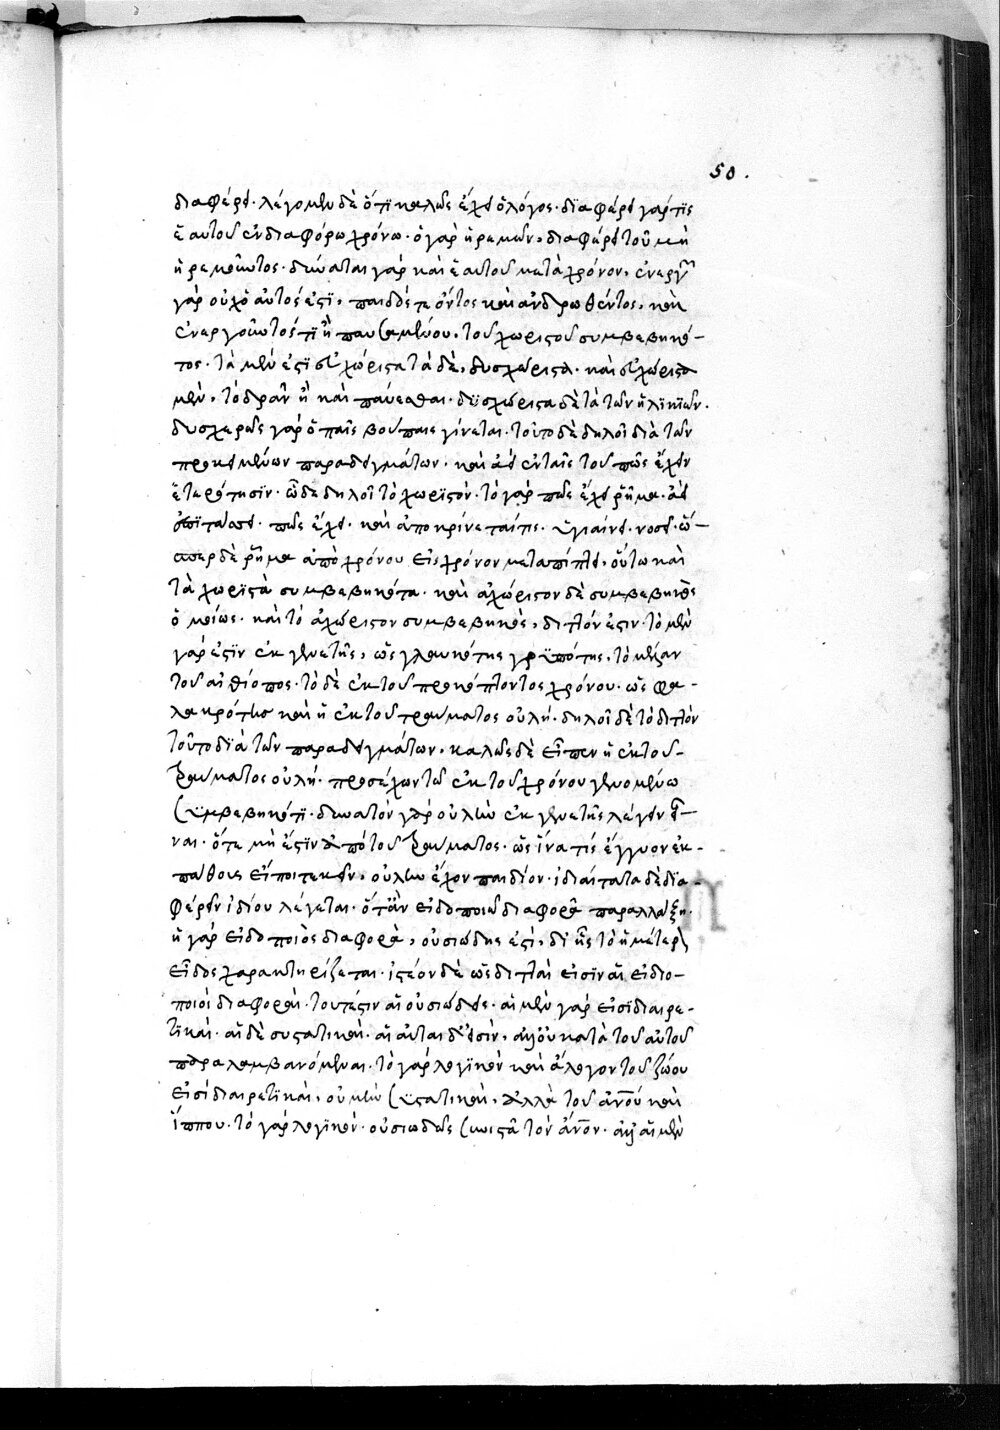 50.
διαφέρει· λέγομεν δὲ ὅτι καλῶς ἔχει ὁ λόγος· διαφέρει γάρ τις
ἑαυτοῦ ἐν διαφόρω χρόνω· ὁ γὰρ ἠρεμῶν, διαφέρει τοῦ μὴ
ἠρεμοῦντος· δύναται γὰρ καὶ ἑαυτοῦ κατὰ χρόνον,
γὰρ οὐχ ὁ αὐτός ἐστι, παιδός τε ὄντος καὶ ἀνδρωθέντος, καὶ
ἐνεργοῦντός τι ἢ παυσαμένου, τοῦ χωριστοῦ συμβεβηκό-
τος· τὰ μέν ἐστι εὐχώριστα τὰ δὲ, δυσχώριστα· καὶ εὐχώριστα
μὲν, τὸ δρᾶν ἢ καὶ παύεσθαι· δυσχώριστα δὲ τὰ τῶν ἡλικιῶν.
δυσχερῶς γὰρ ὁ παῖς βούπαις γίνεται· τοῦτο δὲ δηλοῖ διὰ τῶν
προκειμένων παραδειγμάτων· καὶ ἀεὶ ἐν ταῖς τοῦ πῶς ἔχειν
ἑτερότησιν· ὧδε δηλοῖ τὸ χωριστόν· τὸ γάρ πως ἔχει ῥῆμα· ἀεὶ
πῶς ἔχει· καὶ ἀποκρίνεταί τις· ὑγιαίνει· νοσεῖ· ὥ-
σπερ δὲ ῥῆμα ἀπὸ χρόνου εἰς χρόνον μεταπίπτει, οὕτω καὶ
τὰ χωριστὰ συμβεβηκότα· καὶ ἀχώριστον δὲ συμβεβηκὸς
ὁμοίως· καὶ τὸ ἀχώριστον συμβεβηκὸς, διττόν ἐστιν· τὸ μὲν
γάρ ἐστιν ἐκ γενετῆς, ὡς γλαυκότης γρυπότης, τὸ μέλαν
τοῦ αἰθίοπος· τὸ δὲ ἐκ τοῦ προκόπτοντος χρόνου· ὡς φα-
λακρότης καὶ ἡ ἐκ τοῦ τραύματος οὐλή· δηλοῖ δὲ τὸ διττὸν
τοῦτο διὰ τῶν παραδειγμάτων, καλῶς δὲ εἶπεν ἡ ἐκ τοῦ
τραύματος οὐλή· προσέχων τῶ ἐκ τοῦ χρόνου γενομένω
συμβεβηκότι· δυνατὸν γὰρ οὐλὴν ἐκ γενετῆς λέγειν εἶ-
ναι· ὅτε μή ἐστιν ἀπὸ τοῦ τραύματος· ὡς ἵνα τίς ἔγγυον ἐκ
πάθους εἴποι τεκεῖν, οὐλὴν ἔχον παιδίον· ἰδιαίτατα δὲ δια-
φέρειν ἰδίου λέγεται· ὅταν εἰδοποιῶ διαφορᾶ παραλλάξη·
ἡ γὰρ εἰδοποιὸς διαφορὰ, οὐσιώδης ἐστὶ, δι' ἧς τὸ ἡμέτερον
εἶδος χαρακτηρίζεται· ἰστέον δὲ ὡς διτταὶ εἰσὶν αἱ εἰδο-
ποιοὶ διαφοραὶ· τουτέστιν αἱ οὐσιώδεις· αἱ μὲν γὰρ εἰσὶ διαιρε-
τικαὶ· αἱ δὲ συστατικαὶ· αἱ αὐταὶ δέ εἰσιν, ἀλλ' οὐ κατὰ τοῦ αὐτοῦ
παραλαμβανόμεναι· τὸ γὰρ λογικὸν καὶ ἄλογον τοῦ ζώου
εἰσὶ διαιρετικαὶ, οὐ μὴν συστατικαὶ, ἀλλὰ τοῦ ἀνου καὶ
ἵππου· τὸ γὰρ λογικὸν· οὐσιωδῶς συνιστᾶ τὸν ἄνον· ἀλλ' αἱ μὲν